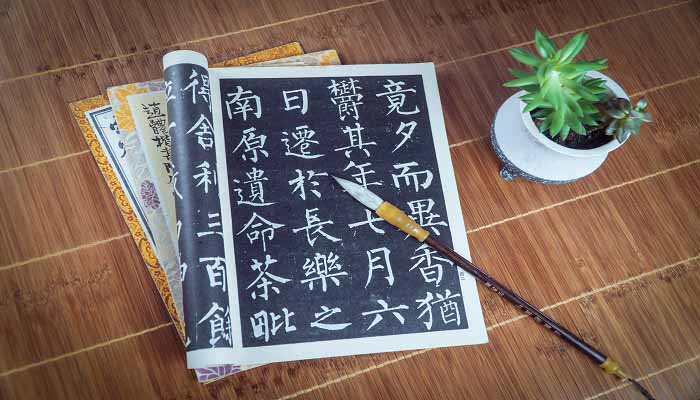 竟夕而異香猶
欎其年七月六
日遷於長樂之
南原遺命茶毗
得舍利三百餘